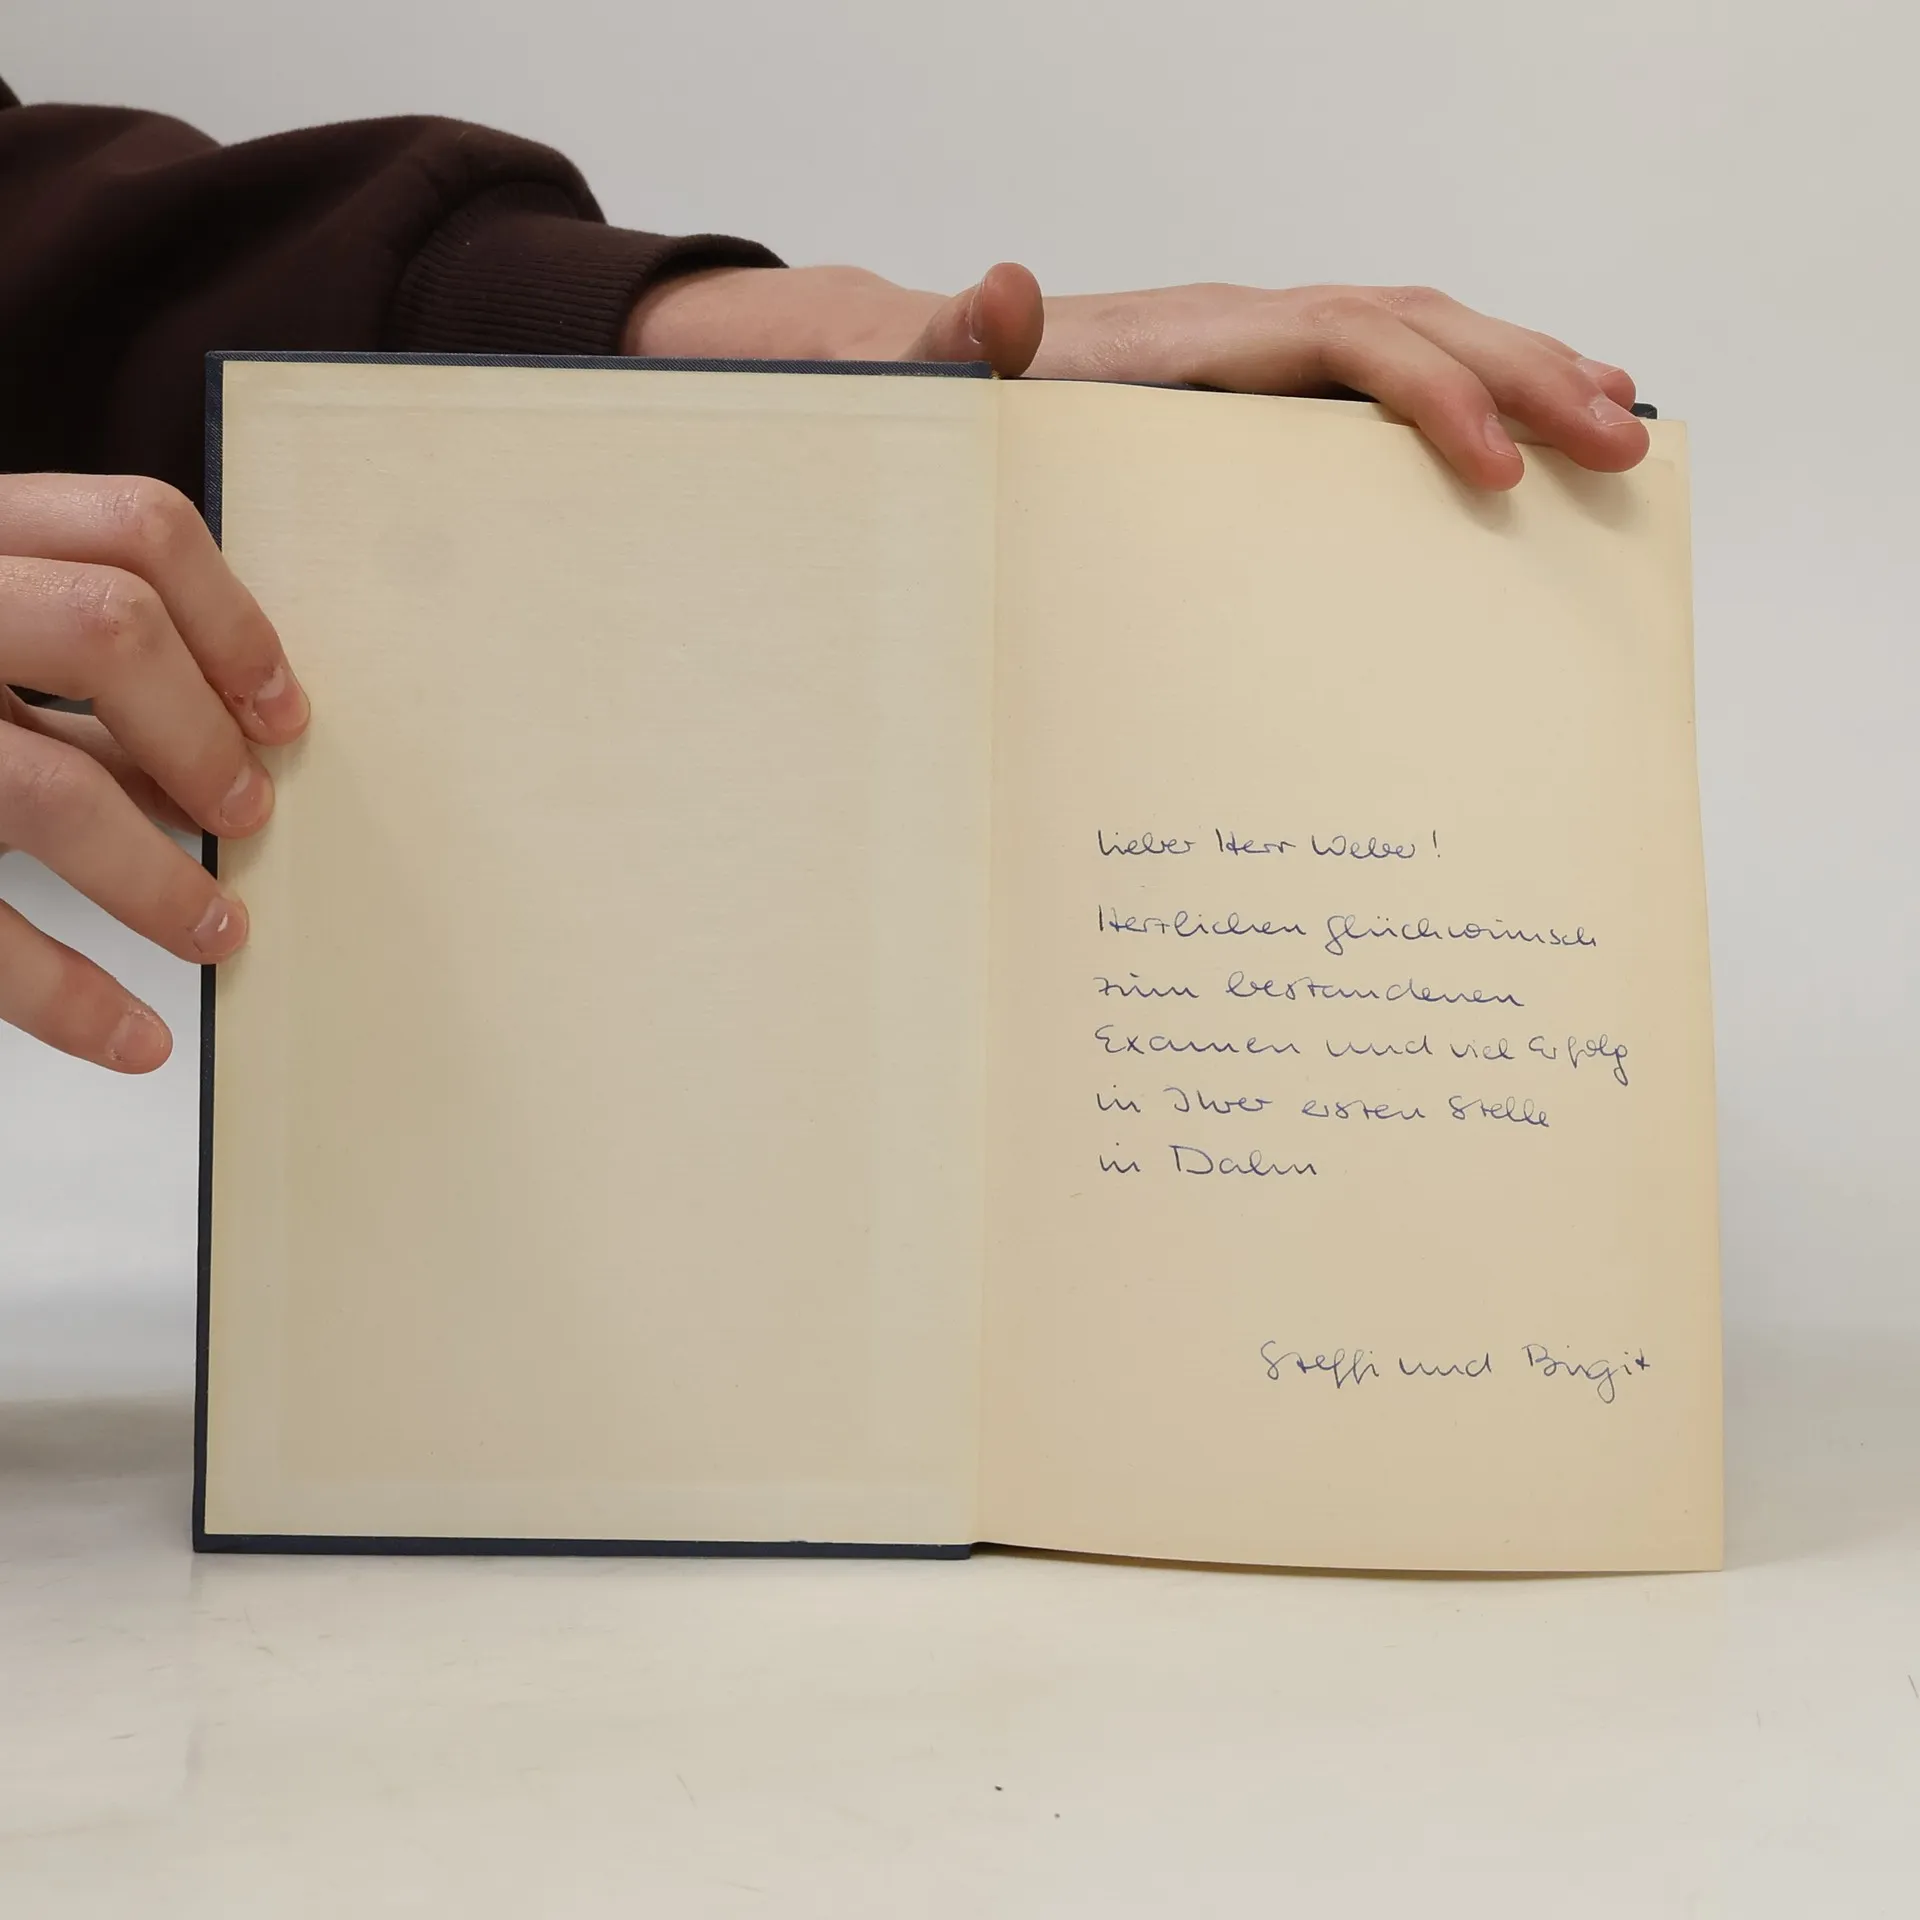 Lieber Herr Weber!
Herzlichen Glückwunsch
zum bestandenen
Examen und viel Erfolg
in Ihrer ersten Stelle
in Dahn
Steffi und Birgit